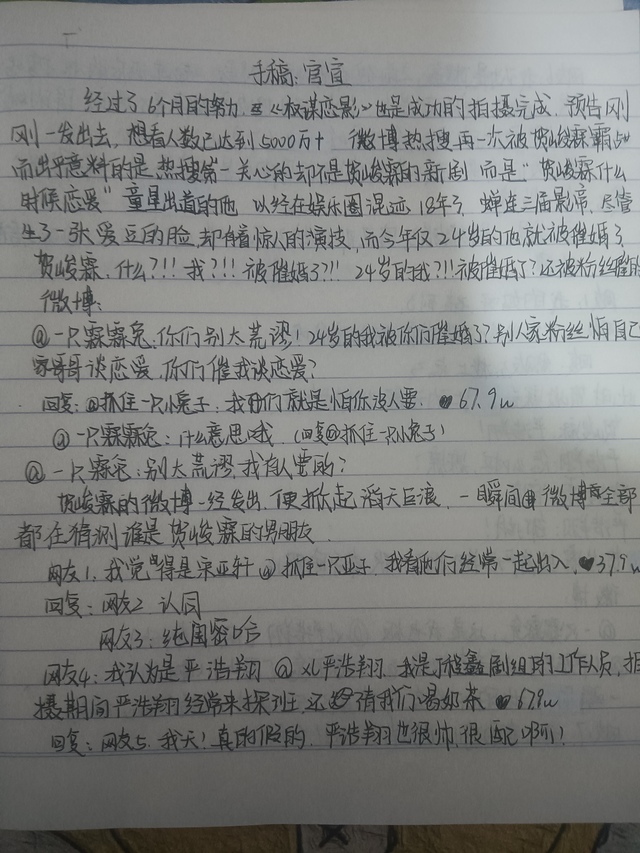 手稿:官宣
经过了6个月目的努力《权谋恋影》也是成功的拍摄完成,预告刚
刚一发出去,想看人数已达到5000万+ 微博热搜再一次被贺峻霖霸占
而出乎意料的是热搜第一关心的却不是贺峻霖的新剧 而是“贺峻霖什么
时候恋爱”童星出道的他 以经在娱乐圈混迹18年了,蝉连三届影帝,尽管
生了一张爱豆的脸,却有着惊人的演技,而今年仅24岁的他就被催婚了.
贺峻霖,什么?!!我?!!被催婚了?!!24岁的我?!!被催婚了?还被粉丝催的
微博:
@一只霖霖兔:你们别太荒谬!24岁的我被你们催婚了?别人家粉丝怕自己
家哥哥谈恋爱,你们催我谈恋爱?
回复:@抓住一只小兔子:我们就是怕你没人要. ♥67.9w
@一只霖霖兔:什么意思哦.(回复@抓住一只小兔子)
@一只霖兔:别太荒谬,我有人要的?
贺峻霖的微博一经发出,便掀起滔天巨浪,一瞬间微博全部
都在猜测谁是贺峻霖的男朋友.
网友1.我觉得是宋亚轩@抓住一只亚子.我看他们经常一起出入.♥37.9w
回复:网友2 认同
网友3:纯闺密哈
网友4:我认为是严浩翔@XL严浩翔.我是丁程鑫剧组的工作人员,拍
摄期间严浩翔经常来探班,还请我们喝奶茶 ♥67.9w
回复:网友5.我天!真的假的.严浩翔也很帅,很配啊!